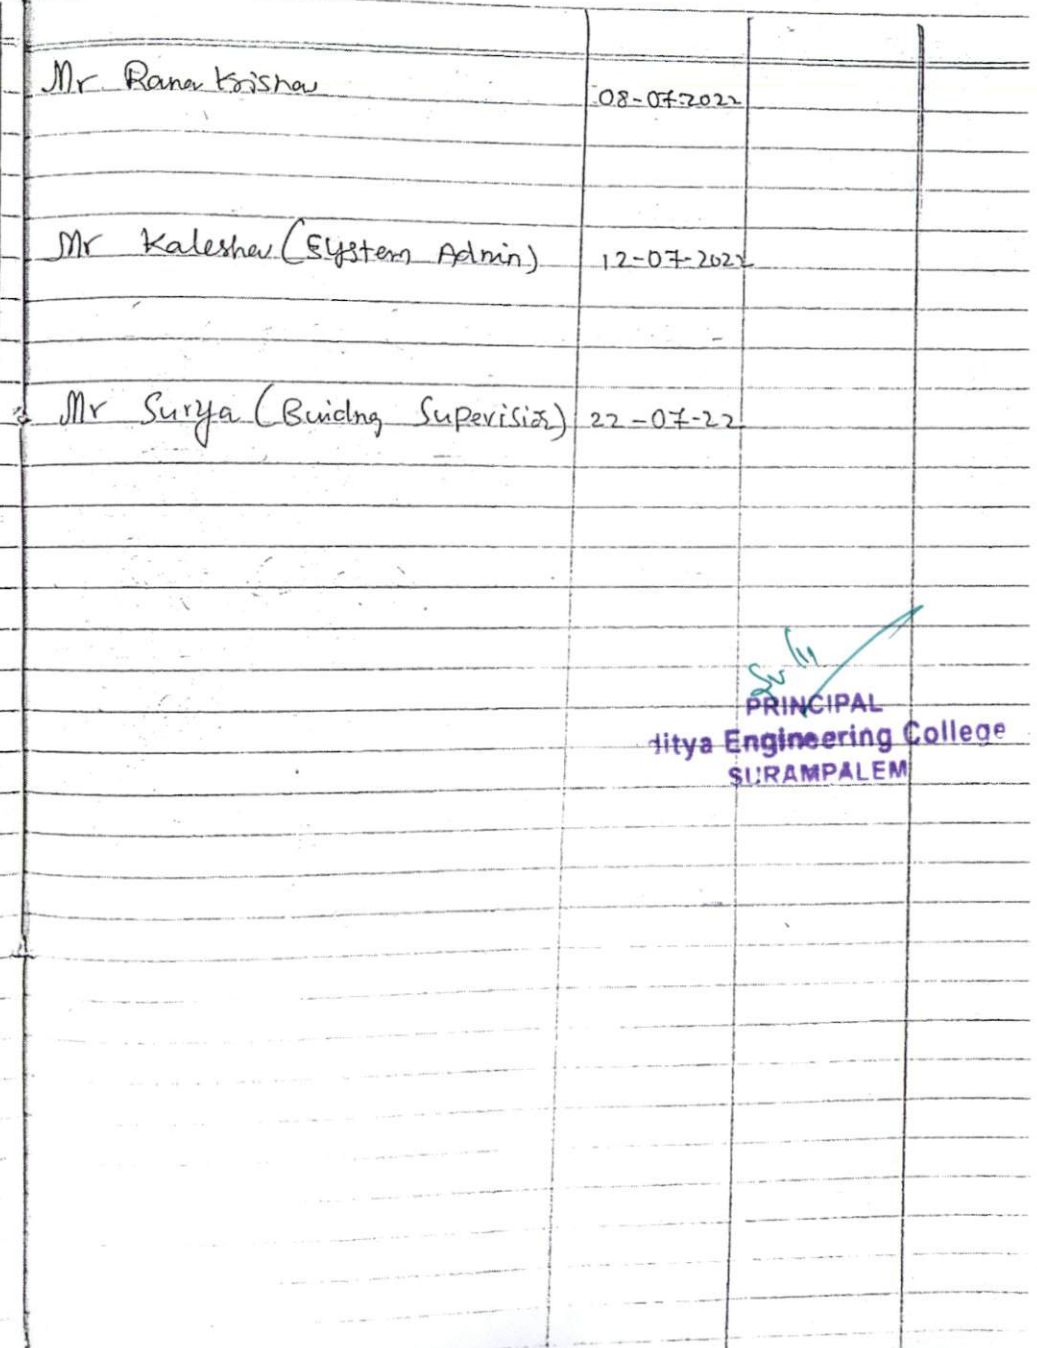 Mr Rama Krishna 08-07-2022
Mr Kalesha (System Admin) 12-07-2022
Mr Surya (Buidng Supervisior) 22-07-22
PRINCIPAL
ditya Engineering College
SURAMPALEM